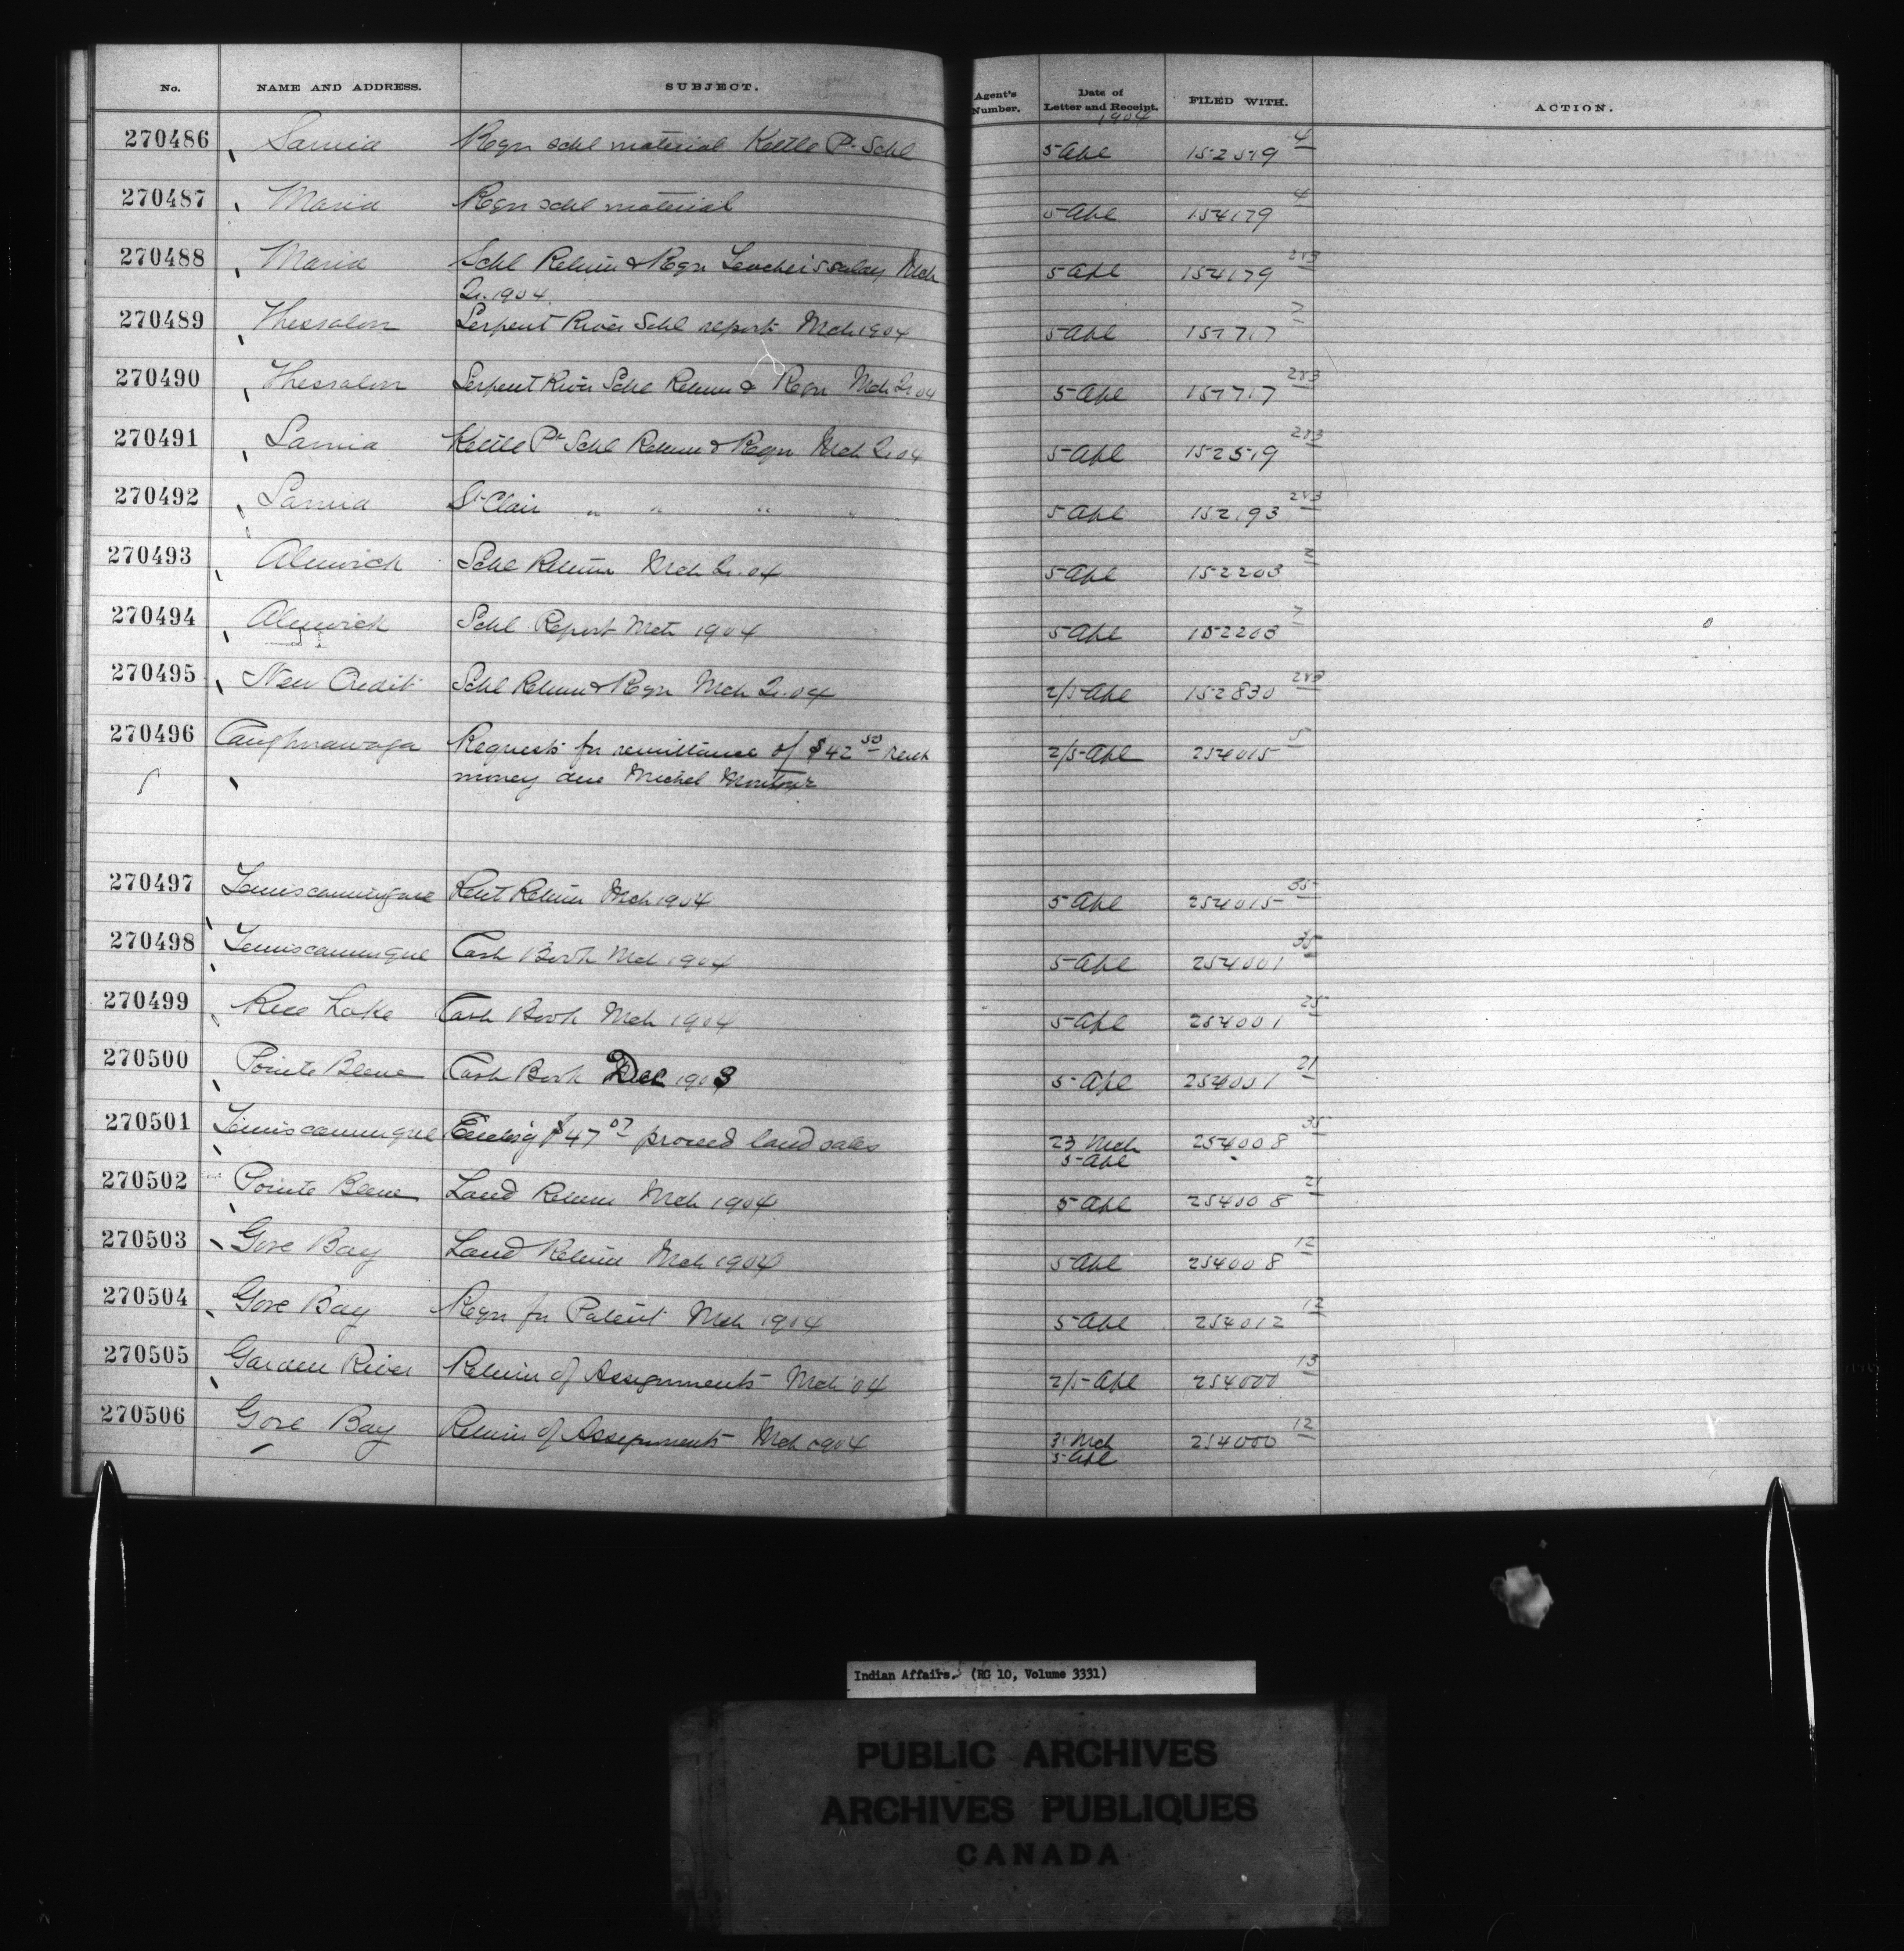 No. NAME AND ADDRESS. SUBJECT. Agent's Number. Date of Letter and Receipt. FILED WITH. ACTION.
1904
270486 Sarnia Reqn schl material Kettle Pt Schl 5 Apl 152519 4
270487 Maria Reqn schl material 5 Apl 154179 4
270488 Maria Schl Return & Reqn Teacher's salary Mch 5 Apl 154179 2&3
Qr. 1904
270489 Thessalon Serpent River Schl report Mch 1904 5 Apl 157717 7
270490 Thessalon Serpent River Schl Return & Reqn Mch Qr 04 5 Apl 157717 2&3
270491 Sarnia Kettle Pt Schl Return & Reqn Mch Qr 04 5 Apl 152519 2&3
270492 Sarnia St Clair " " " " 5 Apl 152193 2&3
270493 Alnwick Schl Return Mch Qr. 04 5 Apl 152203 2
270494 Alnwick Schl Report Mch 1904 5 Apl 152203 7
270495 New Credit Schl Return & Reqn Mch Qr. 04 2/5 Apl 152830 2&3
270496 Caughnawaga Requests for remittance of $42 50 rent 2/5 Apl 254015 5
money due Michel Montour
270497 Temiscamingue Rent Return Mch 1904 5 Apl 254015 35
270498 Temiscamingue Cash Book Mch 1904 5 Apl 254001 35
270499 Rice Lake Cash Book Mch 1904 5 Apl 254001 25
270500 Pointe Bleue Cash Book Dec 1903 5 Apl 254001 21
270501 Temiscamingue Enclsg $47 07 proceed land sales 23 Mch 254008 35
5 Apl
270502 Pointe Bleue Land Return Mch 1904 5 Apl 254008 21
270503 Gore Bay Land Return Mch 1904 5 Apl 254008 12
270504 Gore Bay Reqn for Patent Mch 1904 5 Apl 254012 12
270505 Garden River Return of Assignments Mch '04 2/5 Apl 254000 13
270506 Gore Bay Return of Assignments Mch 1904 31 Mch 254000 12
5 Apl
Indian Affairs. (RG 10, Volume 3331)
PUBLIC ARCHIVES
ARCHIVES PUBLIQUES
CANADA